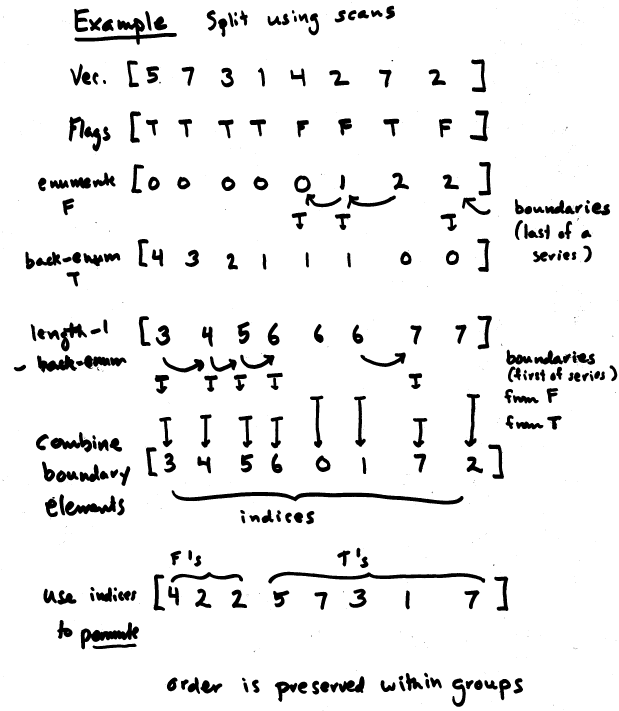 Example Split using scans
Vec. [5 7 3 1 4 2 7 2]
Flags [T T T T F F T F]
enumerate [0 0 0 0 0 1 2 2]
F
I I I
boundaries
(last of a
series)
back-enum [4 3 2 1 1 1 0 0]
T
length-1 [3 4 5 6 6 6 7 7]
- back-enum
I I I I I
boundaries
(first of series)
from F
from T
Combine
boundary [3 4 5 6 0 1 7 2]
elements
indices
F's T's
use indices [4 2 2 5 7 3 1 7]
to permute
order is preserved within groups